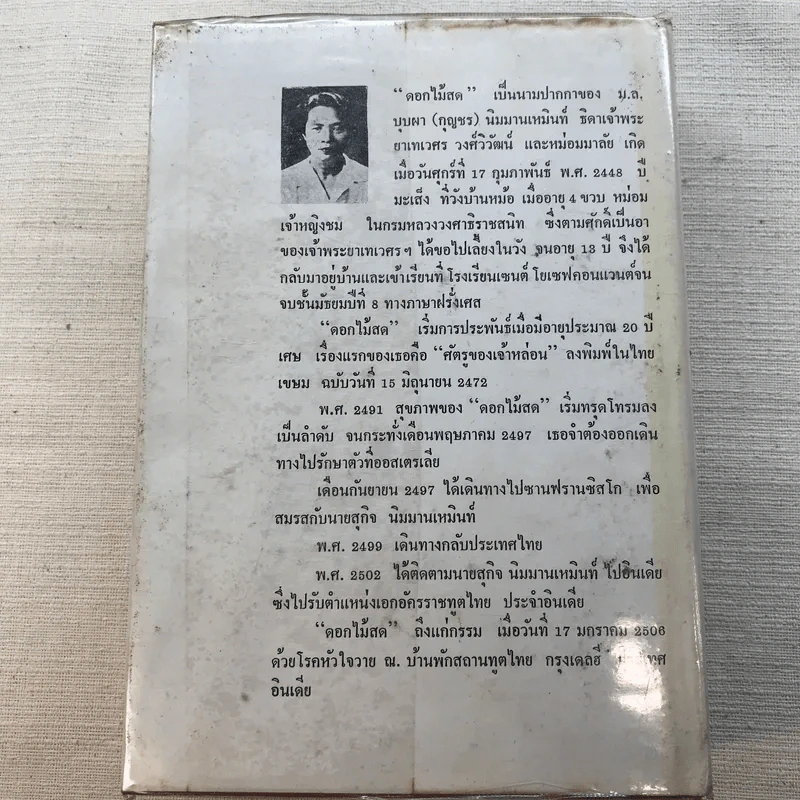 “ดอกไม้สด” เป็นนามปากกาของ ม.ล.
บุบผา (กุญชร) นิมมานเหมินท์ ธิดาเจ้าพระ
ยาเทเวศร วงศ์วิวัฒน์ และหม่อมมาลัย เกิด
เมื่อวันศุกร์ที่ 17 กุมภาพันธ์ พ.ศ. 2448 ปี
มะเส็ง ที่วังบ้านหม้อ เมื่ออายุ 4 ขวบ หม่อม
เจ้าหญิงชม ในกรมหลวงวงศาธิราชสนิท ซึ่งตามศักดิ์เป็นอา
ของเจ้าพระยาเทเวศรฯ ได้ขอไปเลี้ยงในวัง จนอายุ 13 ปี จึงได้
กลับมาอยู่บ้านและเข้าเรียนที่ โรงเรียนเซนต์ โยเซฟคอนแวนต์จน
จบชั้นมัธยมปีที่ 8 ทางภาษาฝรั่งเศส
“ดอกไม้สด” เริ่มการประพันธ์เมื่อมีอายุประมาณ 20 ปี
เศษ เรื่องแรกของเธอคือ “ศัตรูของเจ้าหล่อน” ลงพิมพ์ในไทย
เขษม ฉบับวันที่ 15 มิถุนายน 2472
พ.ศ. 2491 สุขภาพของ “ดอกไม้สด” เริ่มทรุดโทรมลง
เป็นลำดับ จนกระทั่งเดือนพฤษภาคม 2497 เธอจำต้องออกเดิน
ทางไปรักษาตัวที่ออสเตรเลีย
เดือนกันยายน 2497 ได้เดินทางไปซานฟรานซิสโก เพื่อ
สมรสกับนายสุกิจ นิมมานเหมินท์
พ.ศ. 2499 เดินทางกลับประเทศไทย
พ.ศ. 2502 ได้ติดตามนายสุกิจ นิมมานเหมินท์ ไปอินเดีย
ซึ่งไปรับตำแหน่งเอกอัครราชทูตไทย ประจำอินเดีย
“ดอกไม้สด” ถึงแก่กรรม เมื่อวันที่ 17 มกราคม 2506
ด้วยโรคหัวใจวาย ณ. บ้านพักสถานทูตไทย กรุงเดลฮี
อินเดีย